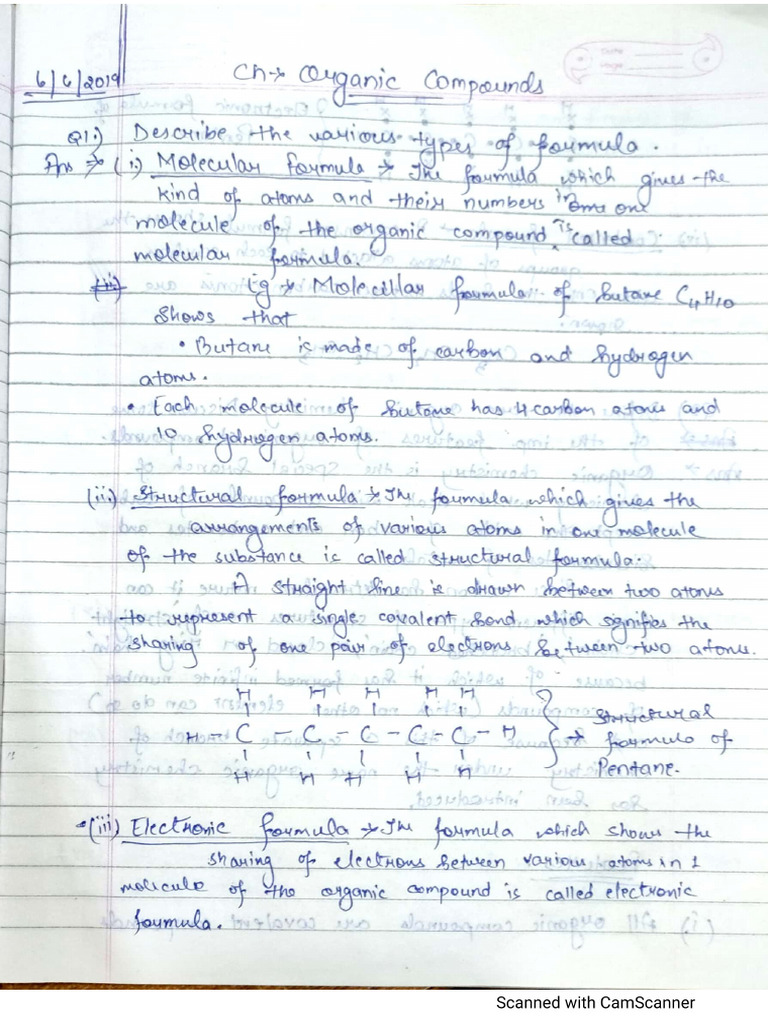 6/6/2019
Ch→ Organic Compounds
Q1.) Describe the various types of formula.
Ans → (i) Molecular formula → The formula which gives the
kind of atoms and their numbers in one
molecule of the organic compound is called
molecular formula.
Eg → Molecular formula of butane C4H10
shows that
• Butane is made of carbon and hydrogen
atoms.
• Each molecule of butane has 4 carbon atoms and
10 hydrogen atoms.
(ii) Structural formula → The formula which gives the
arrangements of various atoms in one molecule
of the substance is called structural formula.
A straight line is drawn between two atoms
to represent a single covalent bond which signifies the
sharing of one pair of electrons between two atoms.
H H H H H
H - C - C - C - C - C - H } → Structural
formula of
H H H H H Pentane.
(iii) Electronic formula → The formula which shows the
sharing of electrons between various atoms in 1
molecule of the organic compound is called electronic
formula.
Scanned with CamScanner